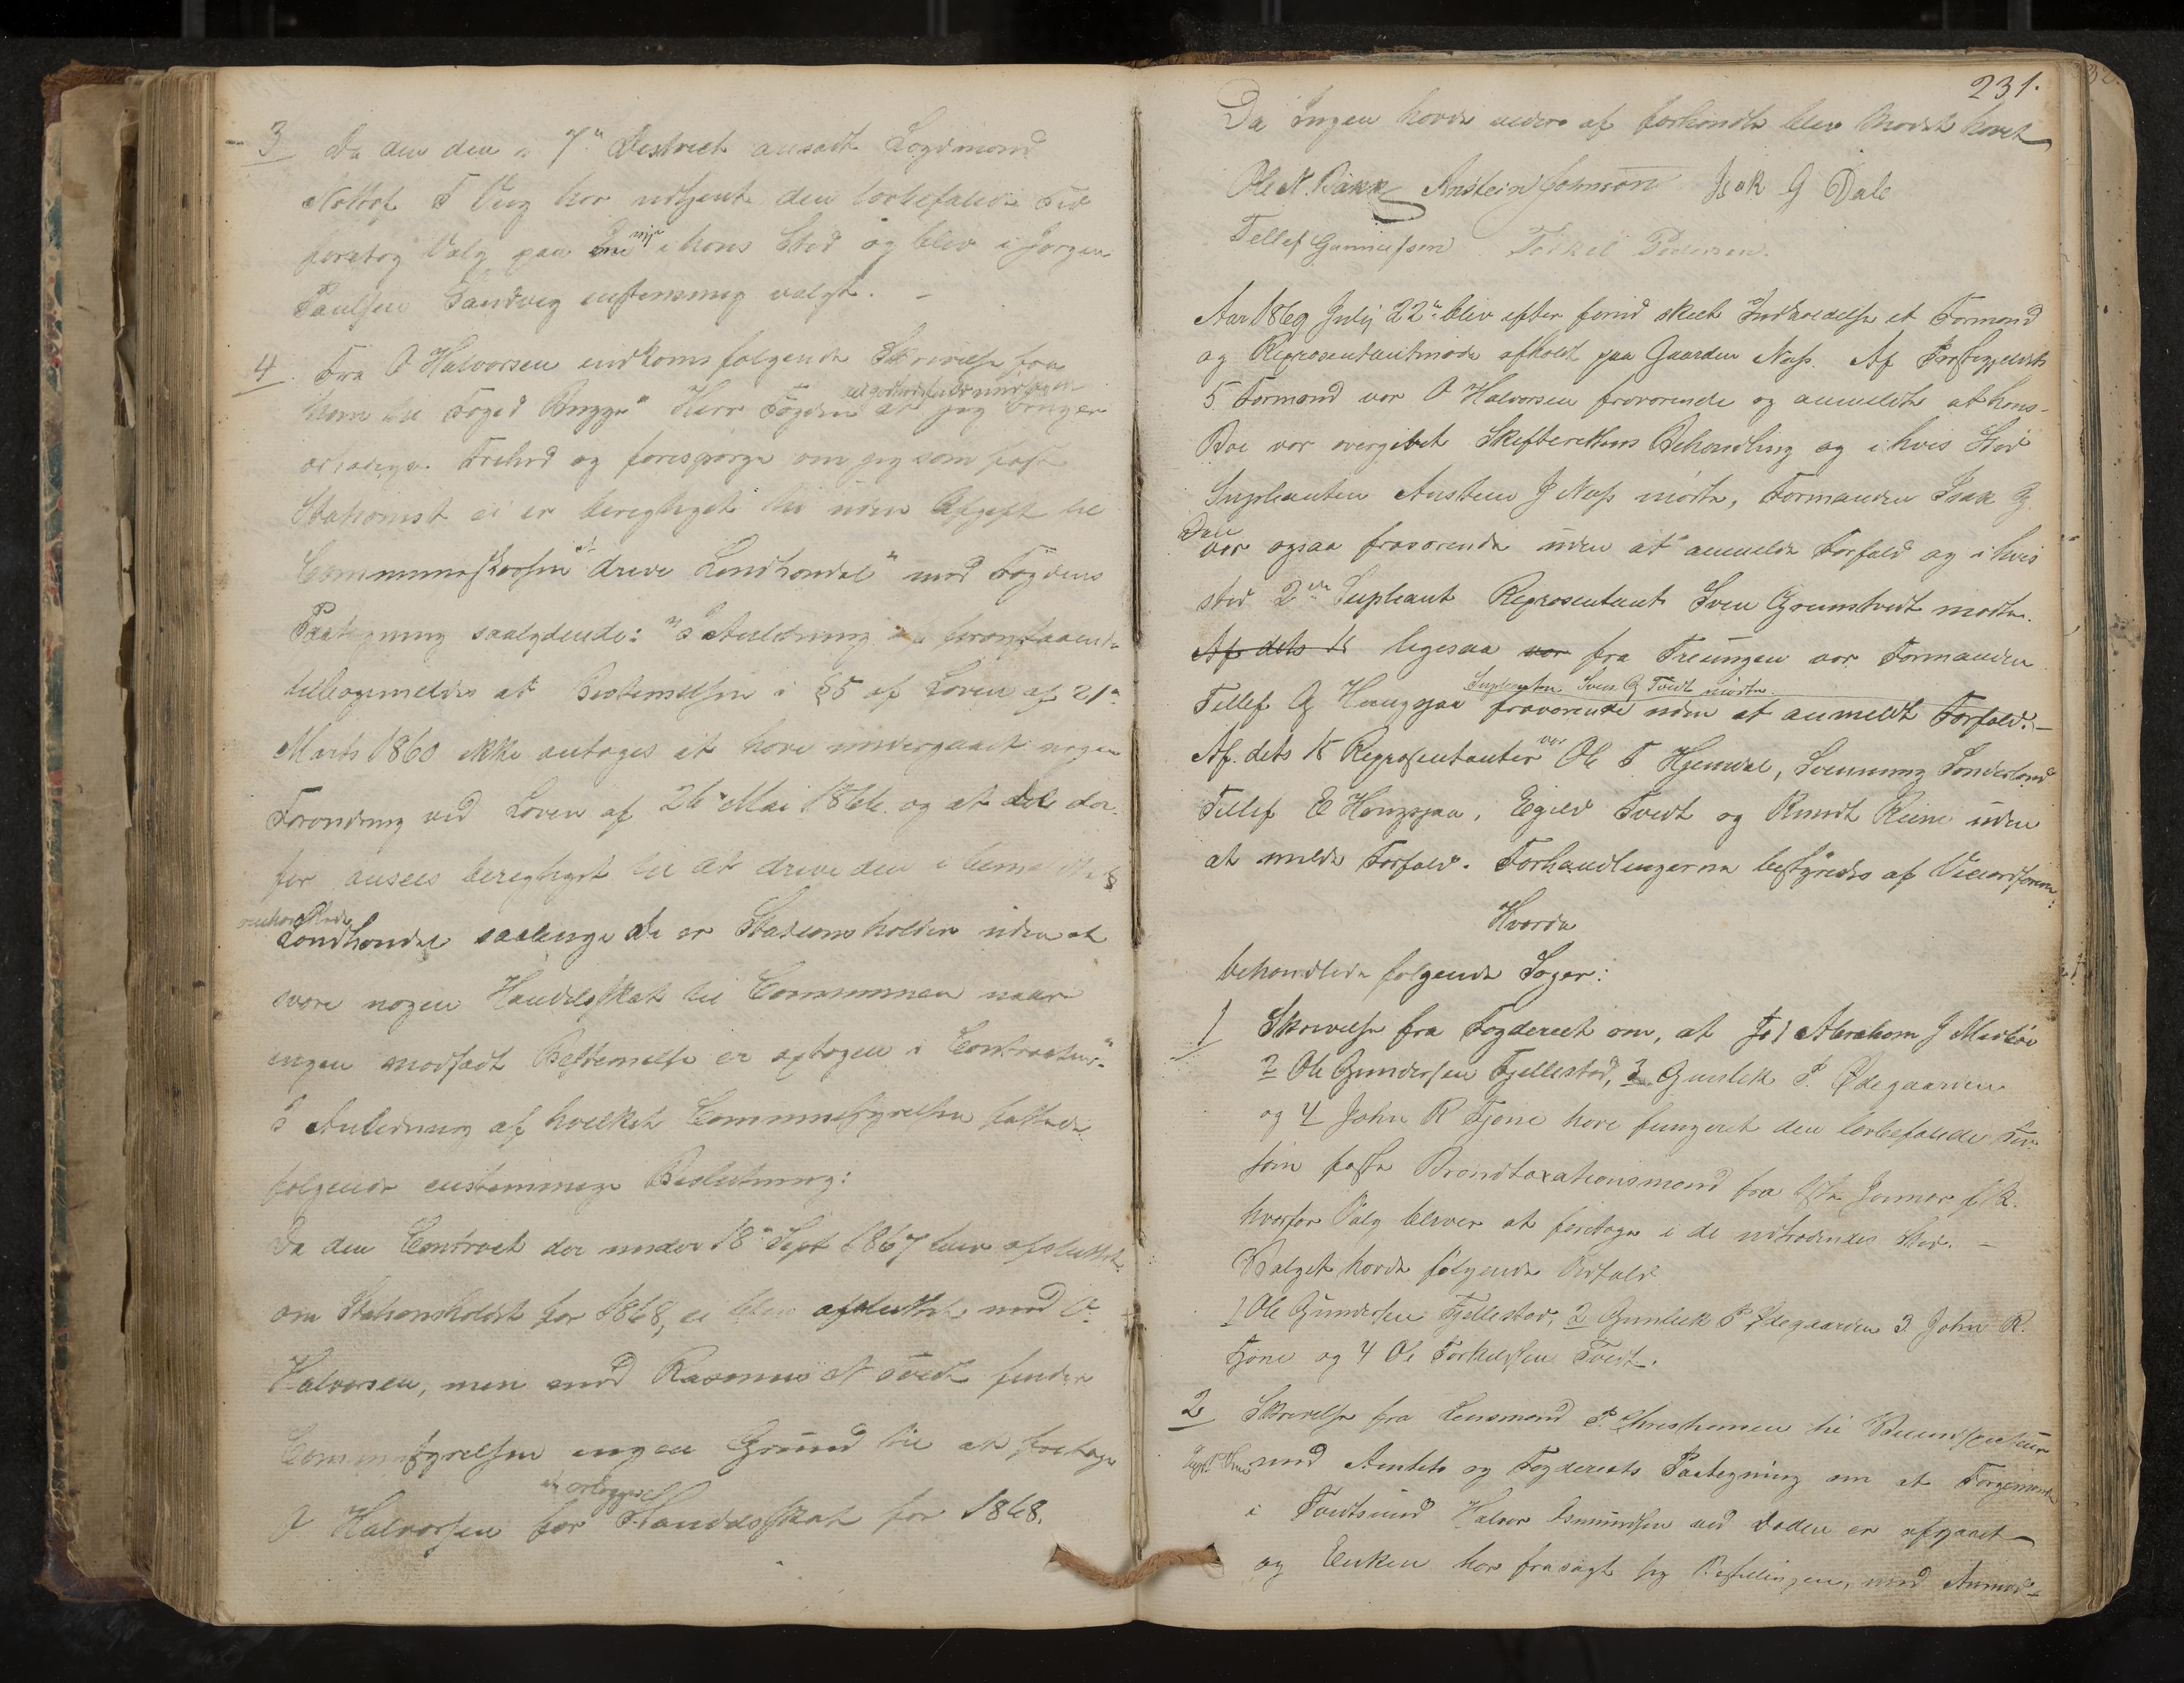 3 Da den den i 7de District ansadt Lægdsmand
Notlof T Veug har udtjent den lovbefalede Tid
foretog Valg paa en nye i hans Sted og blev i Jørgen
Paulsen Sandvig enstemmig valgt. –
4. Fra O Halvorsen indkom følgende Skrivelse fra
ham til Foged Bugge "Herr Fogden at jeg bruger
Frihed og forespørge om jeg som fast
Stationist ei er beregtiget til uden Afgift til
Communekassen at "drive Landhandel" med Fogdens
Paategning saalydende: "I Anledning af foranstaaende
tilbagemeldes at Bestemelsen i §5 af Loven af 21de
Marts 1860 ikke antages at have undergaaet nogen
Forandring ved Loven af 26de Mai 1866 og at De der-
for ansees beregtiget til at drive den i bemeldte §
omhandlede
Landhandel saalænge De er Stationsholder uden at
svare nogen Handelsskat til Communen naar
ingen modsadt Bestemelse er optagen i Contracten."
I Anledning af hvilket Communestyrelsen fattede
følgende enstemmige Beslutning:
Da den Contract der under 18de Sept 1867 blev afsluttet
om Stationsholdet for 1868, ei blev afsluttet med O
Halvorsen, men med Rasmus N Tvedt finder
Communestyrelsen ingen Grund til at fritage
O Halvorsen for den palagte Handelsskat for 1868.
231.
Da Ingen havde videre af forhandle blev Mødet hævet
Ole N. Bakk Anstein Johnson Isak G Dale
Tellef Gunnufsen Torkel Pedersen.
Aar 1869 July 22de blev efter forud skeet Indkaldelse et Formand
og Representantmøde afholdt paa Gaarden Næs. Af Præstegjeldets
5 Formænd var O Halvorsen fraværende og anmeldte at hans
Boe var overgivet Skifterettens Behandling og i hvis Sted
Supleanten Anstein J Næs mødte, Formanden Isak G.
Dale
var ogsaa fraværende uden at anmelde Forfald og i hvis
sted 2den Supleant Representant Sven Grumstvedt mødte.
Af dets 15 ligesaa var fra Treungen var Formanden
Supleanten Sven G Tvedt mødte
Tellef G Haugsjaa fraværende uden at anmeldt Forfald. –
Af dets 15 Representanter var Ole T. Hjemdal, Svennung Sønderland
Tellef E Haugsjaa, Egild Tvedt og Knudt Reine uden
at melde Forfald. Forhandlingerne bestyredes af Viceordføren.
Hvorda
behandlede følgende Sager:
1 Skrivelse fra Fogderiet om, at 1 Abraham J Madsøe
2 Ole Gundersen Fjellestad, 3 Gunlek P. Ødegaarden
og 4 John R Fjone have fungeret den lovbefalede Tid
som faste Brandtaxationsmænd fra 1ste Januar f. A.
hvorfor Valg bliver at foretage i de udtrædendes Sted. –
Valget havde følgende Udfald
1 Ole Gundersen Fjellestad, 2 Gunlek P Ødegaarden 3 John R.
Fjone og 4 Ole Torkelsen Tvedt.
2 Skrivelse fra Lensmand P. Christensen til
med Amtets og Fogderiets Paategning om at Færgemand
i Tvedtsund Halvor Asmundsen ved Døden er afgaaet
og Enken har frasagt sig Bestilingen, med Anmod-